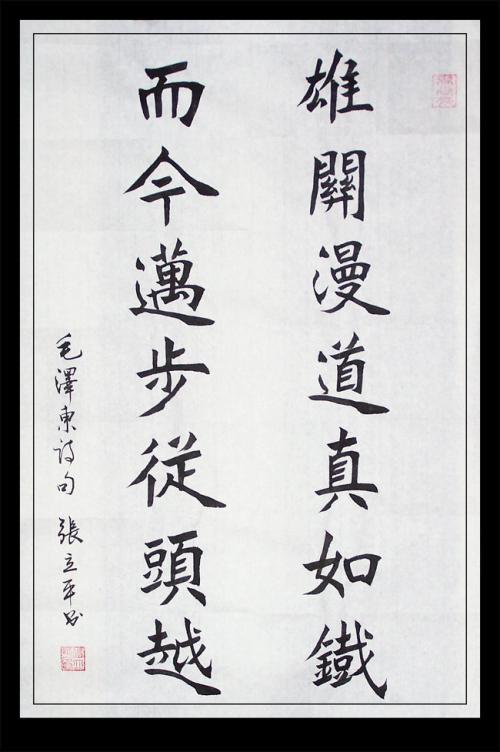 雄關漫道真如鐵
而今邁步從頭越
毛澤東詩句 張立平書